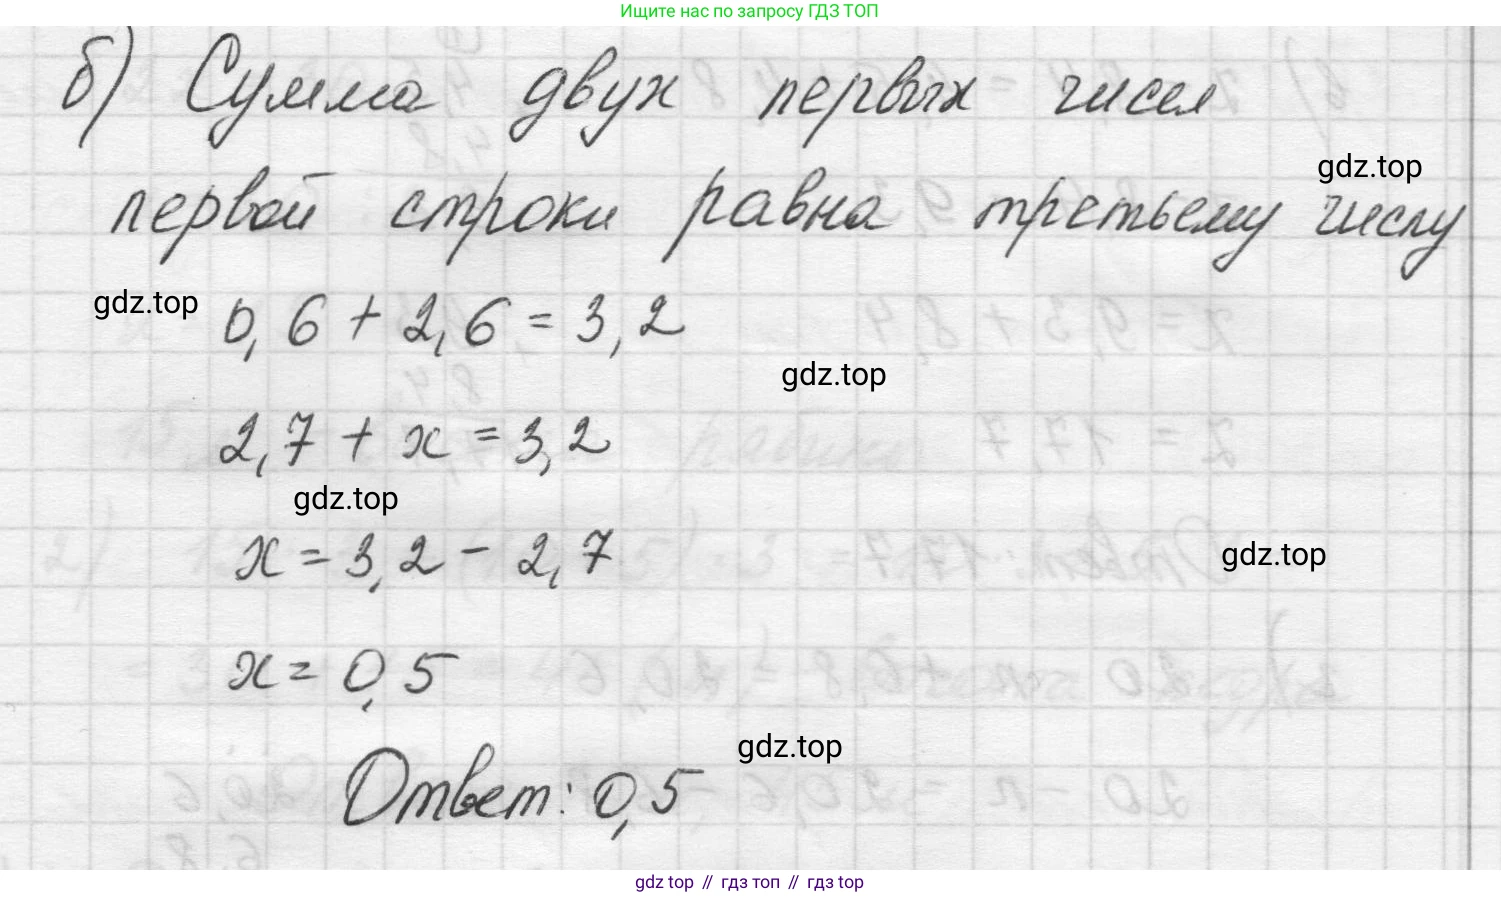 Ищите нас по запросу ГДЗ ТОП
б) Сумма двух первых чисел
gdz.top
первой строки равна третьему числу
gdz.top
0,6 + 2,6 = 3,2
gdz.top
2,7 + x = 3,2
gdz.top
x = 3,2 - 2,7
gdz.top
x = 0,5
gdz.top
Ответ: 0,5
gdz top // гдз топ // гдз top